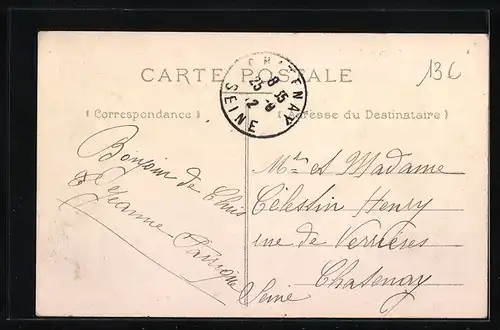 CARTE POSTALE
136
CHATENAY
8 35
25 -8
12
SEINE
(Correspondance)
Adresse du Destinataire)
Bonjour de
Jeanne
Mr et Madame
Célestin Henry
rue de Verrières
Chatenay
Seine